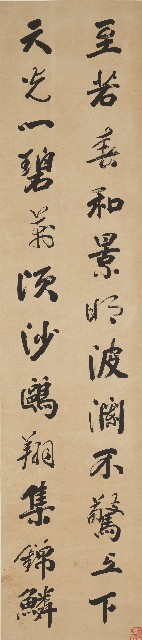 至若春和景明波瀾不驚上下
天光一碧萬頃沙鷗翔集錦鱗